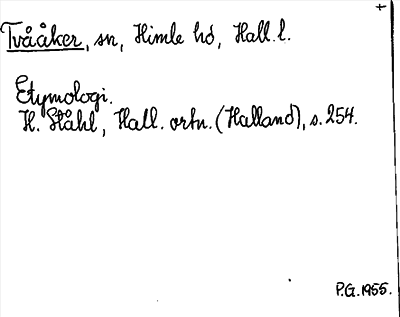 +
Tvååker, sn, Himle hd, Hall. l.
Etymologi.
H. Ståhl, Hall. ortn. (Halland), s. 254.
P.G. 1955.